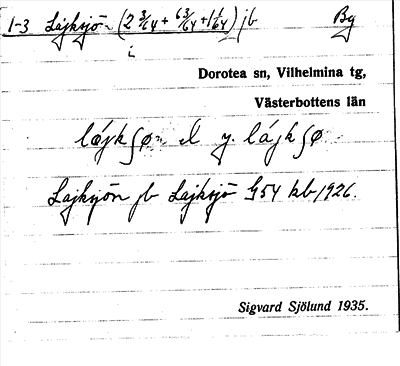 1-3 Lajksjön (2 3/64 + 63/64 + 1 1/64) jb By
Dorotea sn, Vilhelmina tg,
Västerbottens län
lájkʃø·n el y. lájkʃø
Lajksjön jb Lajksjö G54 kb 1926.
Sigvard Sjölund 1935.